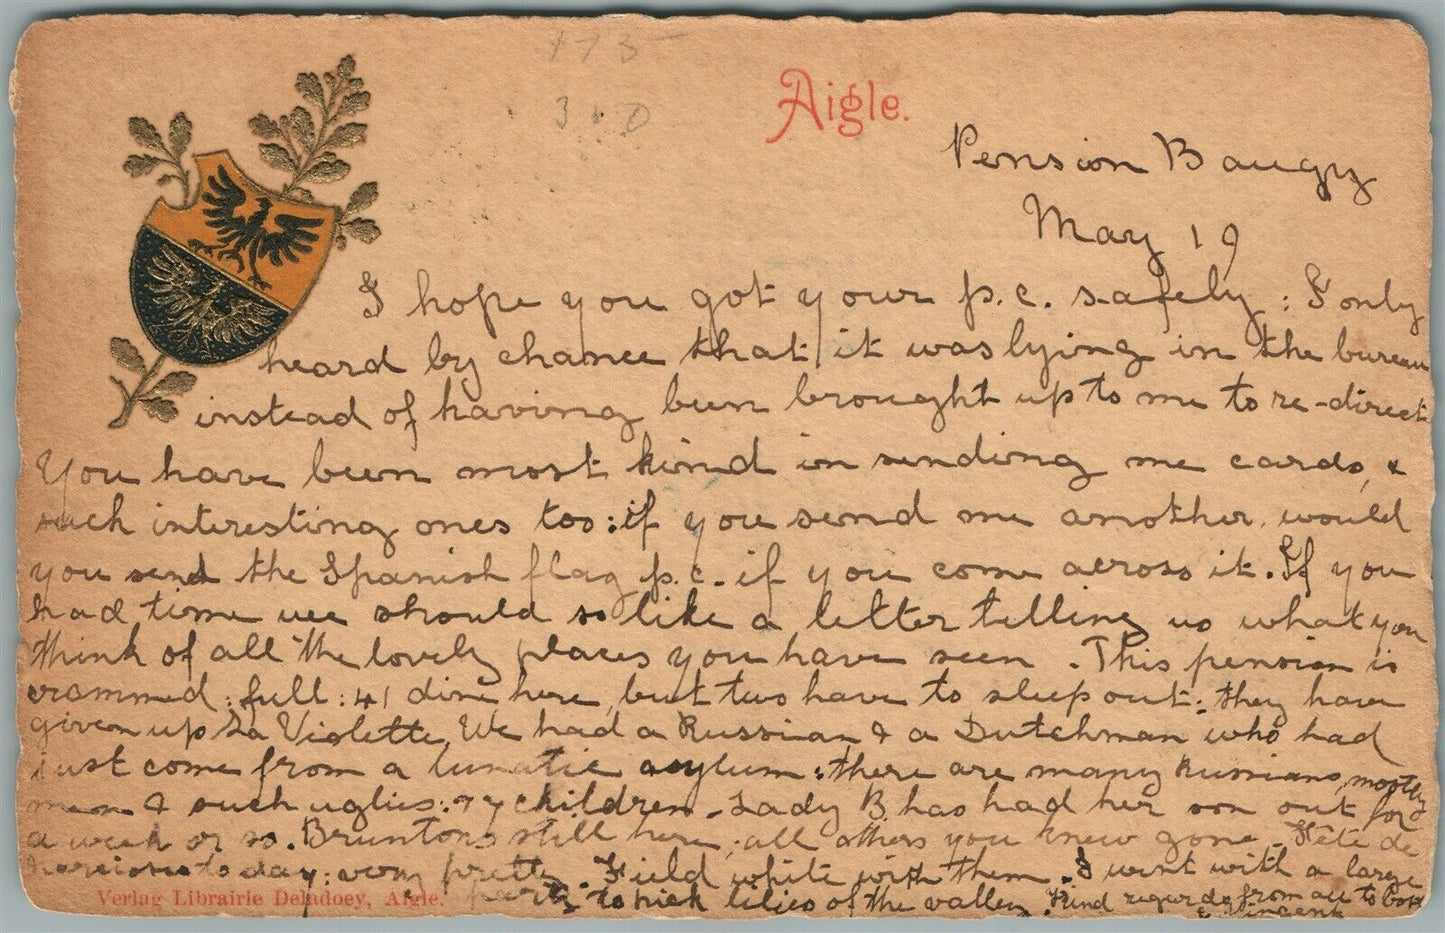 175
300
Aigle.
Pension Baugy
May 19
I hope you got your p.c. safely: I only
heard by chance that it was lying in the bureau
instead of having been brought up to me to re-direct
You have been most kind in sending me cards, &
such interesting ones too: if you send me another, would
you send the Spanish flag p.c. if you come across it. If you
had time we should so like a letter telling us what you
think of all the lovely places you have seen. This pension is
crammed: full: 41 dine here, but two have to sleep out: they have
given up La Violette. We had a Russian & a Dutchman who had
just come from a lunatic asylum: there are many Russians, mostly
men & such uglies: 7 children. Lady B has had her son out for
a week or so. Bruntons still here, all others you knew gone. Fête de
Narcisses today: very pretty. Field white with them. I went with a large
party to pick lilies of the valley. Kind regards from all to both
E Vincent
Verlag Librairie Deladoey, Aigle.